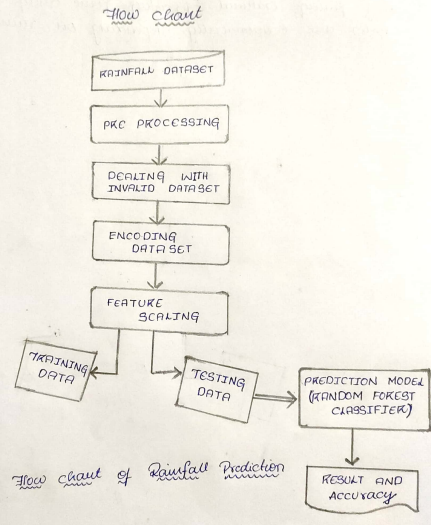 Flow chart
RAINFALL DATASET
PRE PROCESSING
DEALING WITH
INVALID DATASET
ENCODING
DATASET
FEATURE
SCALING
TRAINING
DATA
TESTING
DATA
PREDICTION MODEL
(RANDOM FOREST
CLASSIFIER)
RESULT AND
ACCURACY
Flow chart of Rainfall Prediction